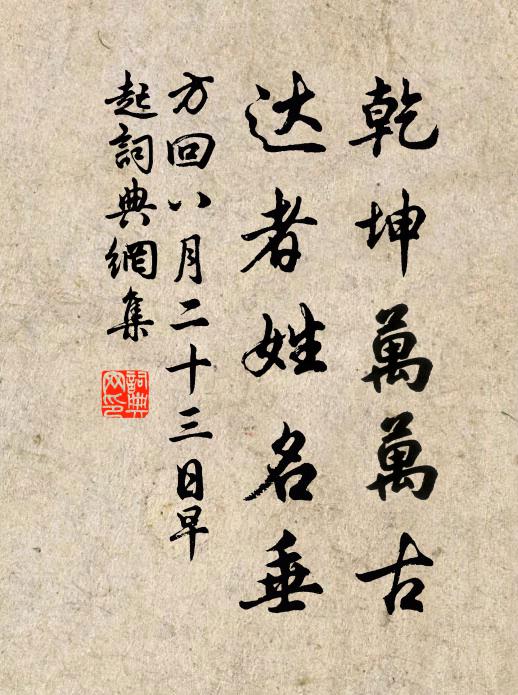 乾坤萬萬古
达者姓名垂
方回八月二十三日早
起詞典網集
詞典网印